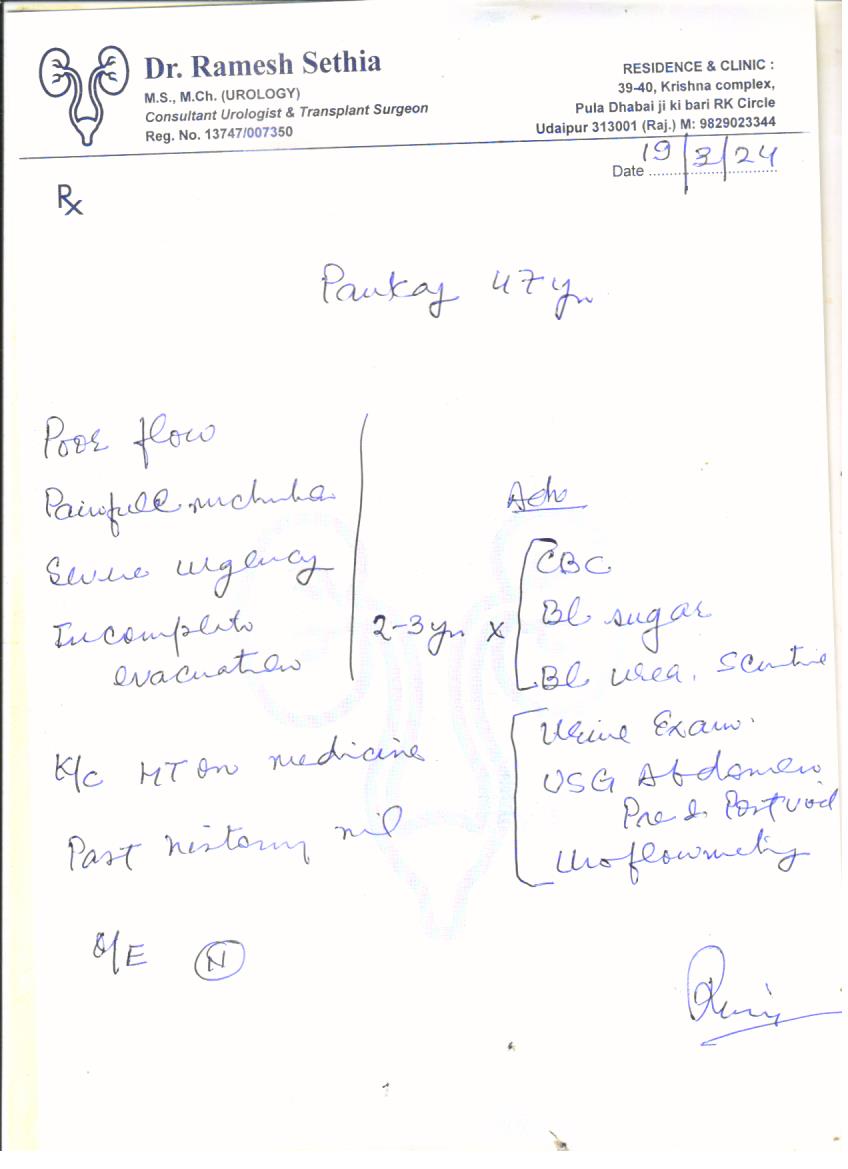 Dr. Ramesh Sethia
M.S., M.Ch. (UROLOGY)
Consultant Urologist & Transplant Surgeon
Reg. No. 13747/007350
RESIDENCE & CLINIC :
39-40, Krishna complex,
Pula Dhabai ji ki bari RK Circle
Udaipur 313001 (Raj.) M: 9829023344
Date 19/3/24
Rx
Pankaj 47 yr
Poor flow
Painfull
Severe urgency
Incomplete
evacuation
2-3 yr x
K/c HT on medicine
Past history nil
O/E N
Adv
CBC
Bl sugar
Bl urea,
Urine Exam.
USG Abdomen
Pre & Post void
Uroflowmetry